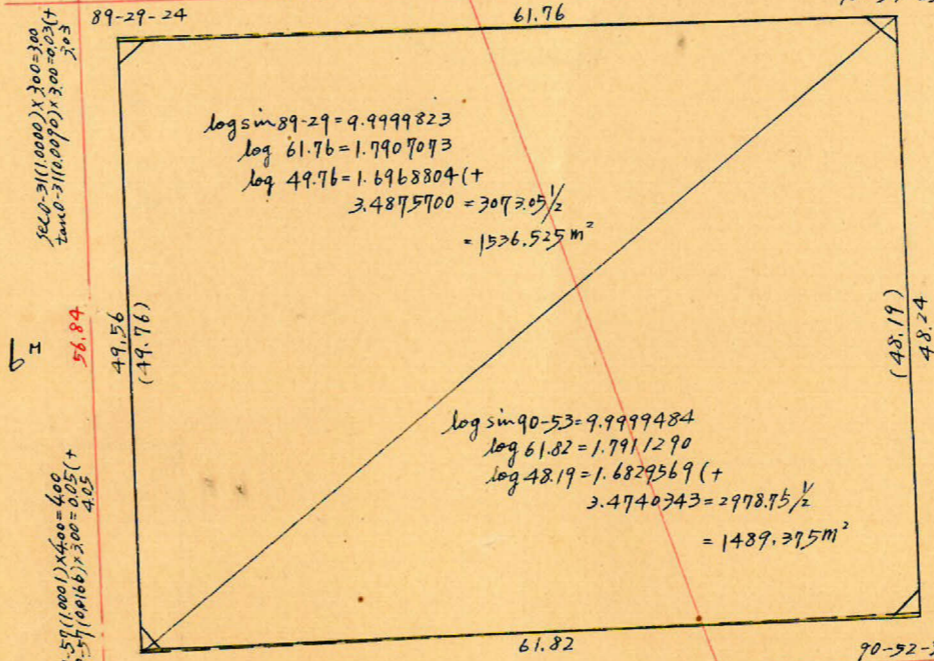 89-29-24
61.76
sec0-31(1.0000)×3.00=3.00
tan0-31(0.0090)×3.00=0.03(+
3.03
log sin 89-29=9.9999823
log 61.76=1.7907073
log 49.76=1.6968804(+
3.4875700=3073.05 1/2
=1536.525m²
56.84
49.56
(49.76)
(48.19)
48.24
log sin 90-53=9.9999484
log 61.82=1.7911290
log 48.19=1.6829569(+
3.4740343=2978.75 1/2
=1489.375m²
-57(1.0001)×4.00=4.00
-57(0.0166)×3.00=0.05(+
4.05
61.82
90-52-